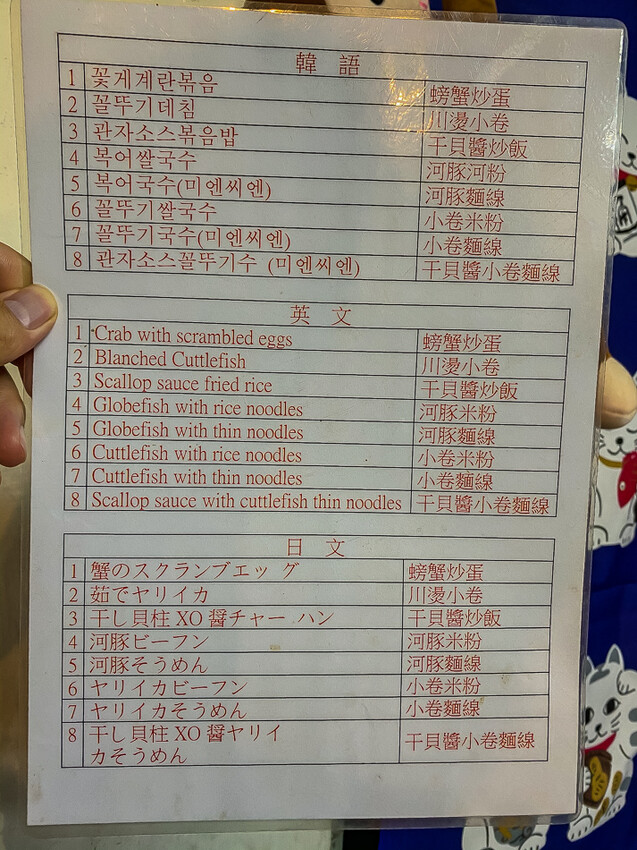 韓 語
1 꽃게계란볶음 螃蟹炒蛋
2 꼴뚜기데침 川燙小卷
3 관자소스볶음밥 干貝醬炒飯
4 복어쌀국수 河豚河粉
5 복어국수(미엔씨엔) 河豚麵線
6 꼴뚜기쌀국수 小卷米粉
7 꼴뚜기국수(미엔씨엔) 小卷麵線
8 관자소스꼴뚜기수 (미엔씨엔) 干貝醬小卷麵線
英 文
1 Crab with scrambled eggs 螃蟹炒蛋
2 Blanched Cuttlefish 川燙小卷
3 Scallop sauce fried rice 干貝醬炒飯
4 Globefish with rice noodles 河豚米粉
5 Globefish with thin noodles 河豚麵線
6 Cuttlefish with rice noodles 小卷米粉
7 Cuttlefish with thin noodles 小卷麵線
8 Scallop sauce with cuttlefish thin noodles 干貝醬小卷麵線
日 文
1 蟹のスクランブエッグ 螃蟹炒蛋
2 茹でヤリイカ 川燙小卷
3 干し貝柱 XO 醤チャーハン 干貝醬炒飯
4 河豚ビーフン 河豚米粉
5 河豚そうめん 河豚麵線
6 ヤリイカビーフン 小卷米粉
7 ヤリイカそうめん 小卷麵線
8 干し貝柱 XO 醤ヤリイ 干貝醬小卷麵線
カそうめん